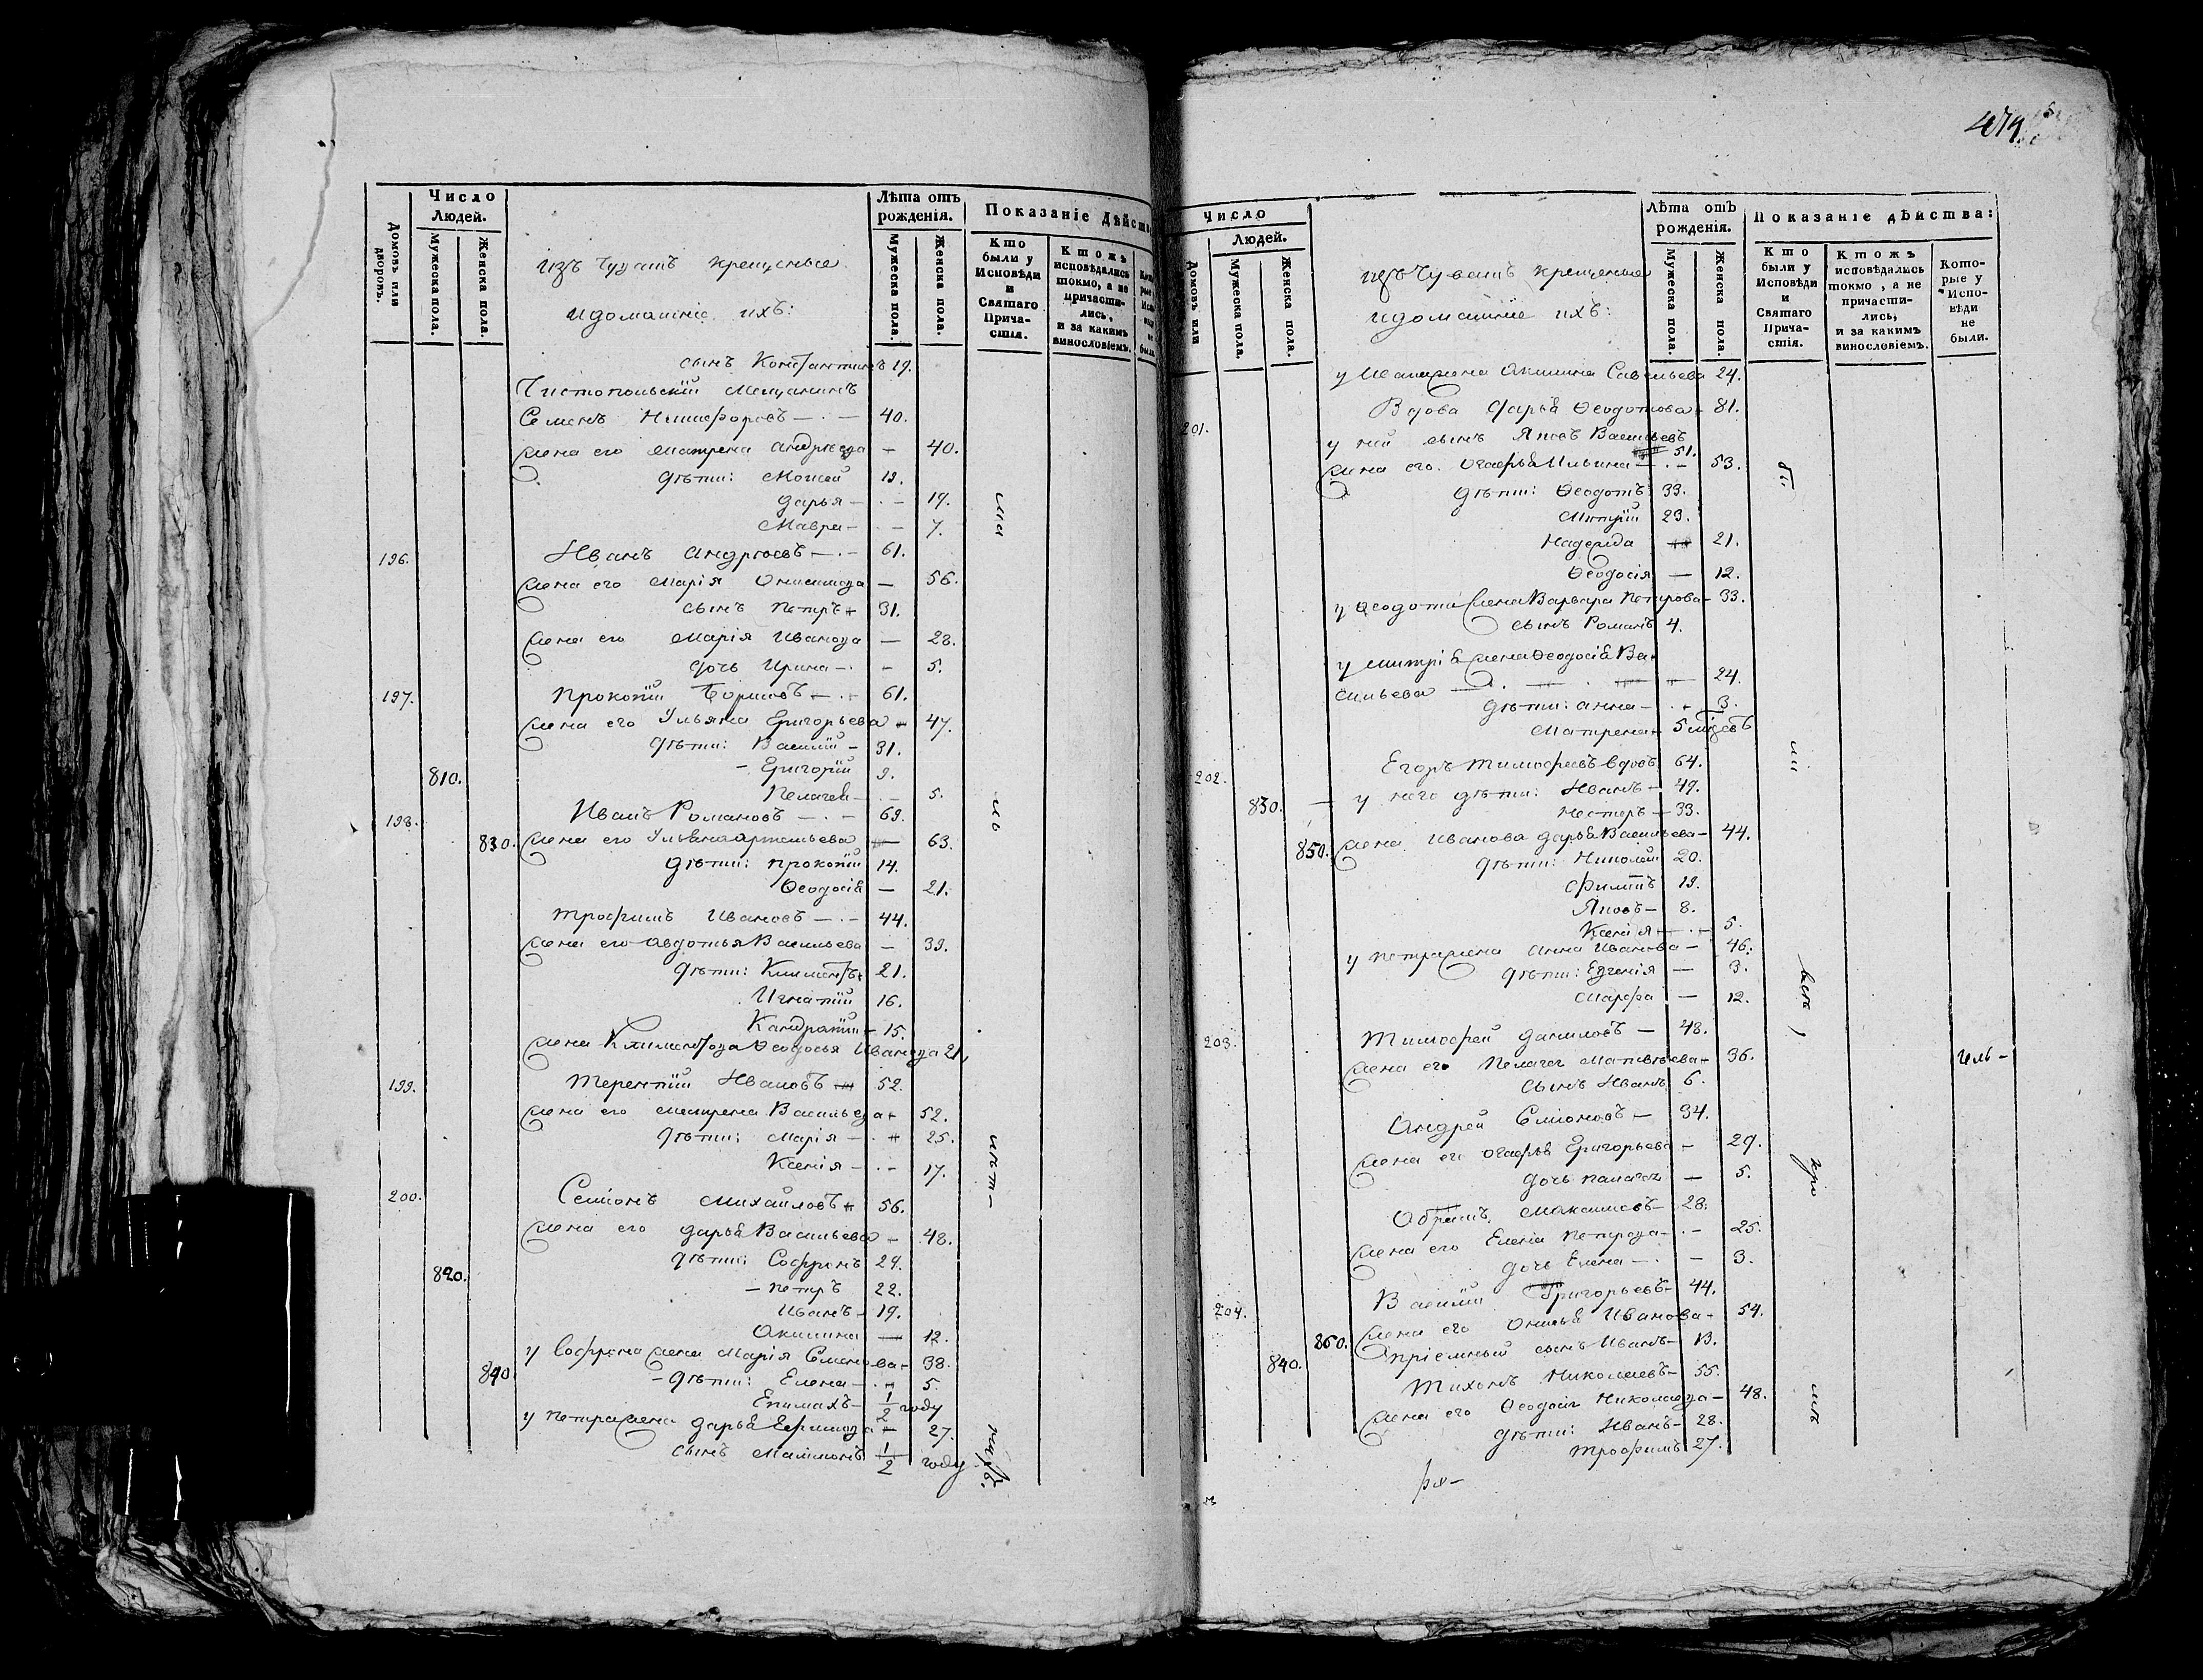 Домовъ или дворовъ.
Число Людей.
Мужеска пола.
Женска пола.
изъ Чувашъ крещеные
и домашніе ихъ:
Лѣта отъ рожденія.
Мужеска пола.
Женска пола.
Показаніе Дѣйств
Кто были у Исповѣди и Святаго Причастія.
Ктожъ исповѣдались токмо, а не причастились, и за какимъ винословіемъ.
сынъ Константинъ 19.
Чистопольскій Мещанинъ
Семенъ Никифоровъ — 40.
жена его Матрена Андреева — 40.
дѣти: Моисей 19.
Дарья — 17.
Мавра — 7.
196. Иванъ Андреевъ — 61.
жена его Марія Онисимова — 56.
сынъ Петръ 31.
жена его Марія Иванова — 28.
дочь Ирина — 5.
197. Прокопій Борисовъ — 61.
жена его Ульяна Григорьева — 47.
дѣти: Василій — 31.
810. — Григорій 9.
Пелагея — 5.
198. Иванъ Романовъ — 69.
830. жена его Ульяна — 63.
дѣти: Прокопій 14.
Ѳеодосія — 21.
Трофимъ Ивановъ — 44.
жена его Авдотья Васильева — 39.
дѣти: Климентъ 21.
Игнатій 16.
Кандратій — 15.
жена Климентова Ѳеодосья Иванова 21.
199. Терентій Ивановъ — 52.
жена его Матрена Васильева — 52.
дѣти: Марія — 25.
Ксенія — 17.
200. Семіонъ Михайловъ 56.
жена его Дарья Васильева — 48.
дѣти: Софронъ 24.
820. — Петръ 22.
Иванъ — 19.
Акилина — 12.
у Софрона жена Марія Семенова — 38.
840. — дѣти: Елена — 5.
Епимахъ — 1/2 году
у Петра жена Дарья Ефимова — 27.
сынъ 1/2 году
Число Людей.
Домовъ или
Мужеска пола.
Женска пола.
изъ Чувашъ крещеные
и домашніе ихъ:
Лѣта отъ рожденія.
Мужеска пола.
Женска пола.
Показаніе дѣйства:
Кто были у Исповѣди и Святаго Причастія.
Ктожъ исповѣдались токмо, а не причастились, и за какимъ винословіемъ.
Которые у Исповѣди не были.
жена Акилина Савельева 24.
Вдова Дарья Ѳеодотова — 81.
201. у ней сынъ Яковъ Васильевъ 51.
жена его Агафья Ильина — 53.
дѣти: Ѳеодотъ 33.
Митрій 23.
Надежда 21.
Ѳеодосія — 12.
у Ѳеодота жена Варвара Петрова — 33.
сынъ Романъ 4.
у Митрія жена Ѳеодосія Ва-
сильева — 24.
дѣти: Анна — 3.
Матрена 5 мѣсцовъ
202. Егоръ Тимофеевъ вдовъ 64.
830. — у него дѣти: Иванъ — 47.
Несторъ — 33.
850. жена Иванова Дарья Васильева — 44.
дѣти: Николай 20.
Филипъ 19.
Яковъ — 8.
Ксенія — 5.
у Петра жена Анна Иванова — 46.
дѣти: Евгенія — 3.
Марфа — 12.
203. Тимофей Даниловъ — 48.
жена его Пелагея Матвѣева — 36.
сынъ Иванъ 6.
Андрей Семіоновъ — 34.
жена его Агафья Григорьева — 29.
дочь Палагея — 5.
Максимовъ — 28.
жена его Елена Петрова — 25.
дочь Елена — 3.
204. Василій Григорьевъ — 44.
860. жена его Иванова — 54.
840. пріемный сынъ Иванъ — 13.
Тихонъ Николаевъ — 55.
жена его Ѳеодосія Николаева — 48.
дѣти: Иванъ — 28.
Трофимъ 27.